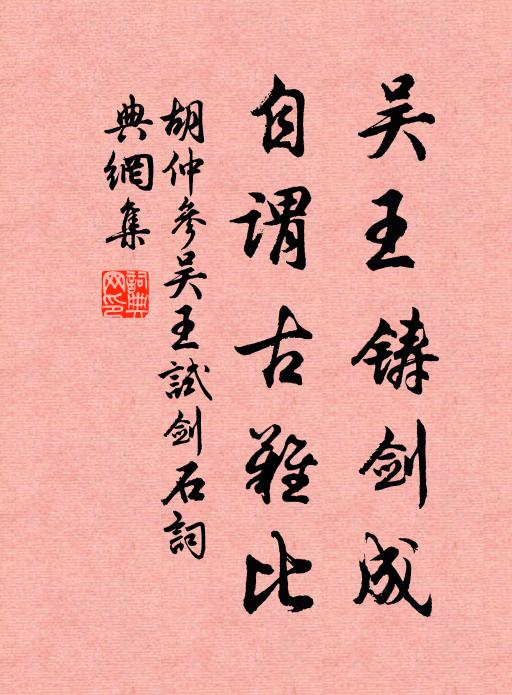 吴王铸剑成
自谓古难比
胡仲参吴王試剑石詞
典網集
詞典网印